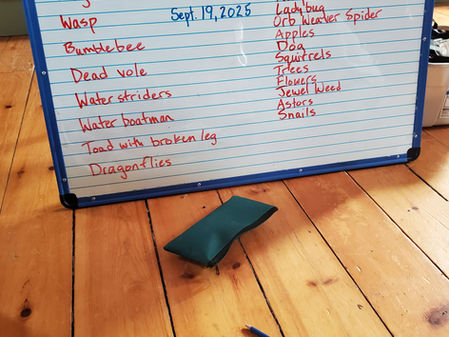 Wasp
Sept. 19, 2025
Bumblebee
Dead vole
Water striders
Water boatman
Toad with broken leg
Dragonflies
Ladybug
Orb Weaver Spider
Apples
Dog
Squirrels
Trees
Flowers
Jewel Weed
Astors
Snails